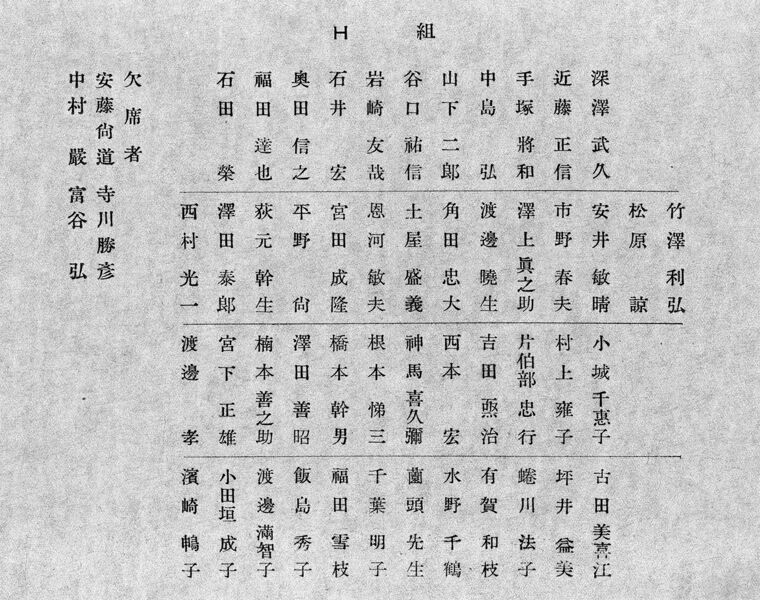 H 組
深澤武久
近藤正信
手塚將和
中島弘
山下二郎
谷口祐信
岩崎友哉
石井宏
奥田信之
福田達也
石田榮
竹澤利弘
松原諒
安井敏晴
市野春夫
澤上眞之助
渡邊曉生
角田忠大
土屋盛義
恩河敏夫
宮田成隆
平野尙
荻元幹生
澤田泰郎
西村光一
小城千惠子
村上雍子
片伯部忠行
吉田凞治
西本宏
神馬喜久彌
根本悌三
橋本幹男
澤田善昭
楠本善之助
宮下正雄
渡邊孝
古田美喜江
坪井益美
蜷川法子
有賀和枝
水野千鶴
薗頭先生
千葉明子
福田雪枝
飯島秀子
渡邊滿智子
小田垣成子
濱崎鞆子
欠席者
安藤尙道 寺川勝彦
中村嚴 富谷弘